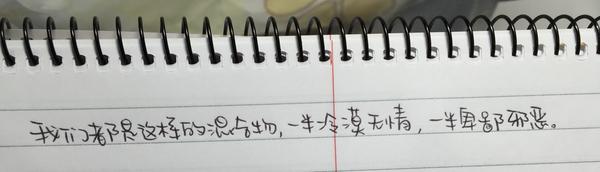 我们都是这样的混合物，一半冷漠无情，一半卑鄙邪恶。